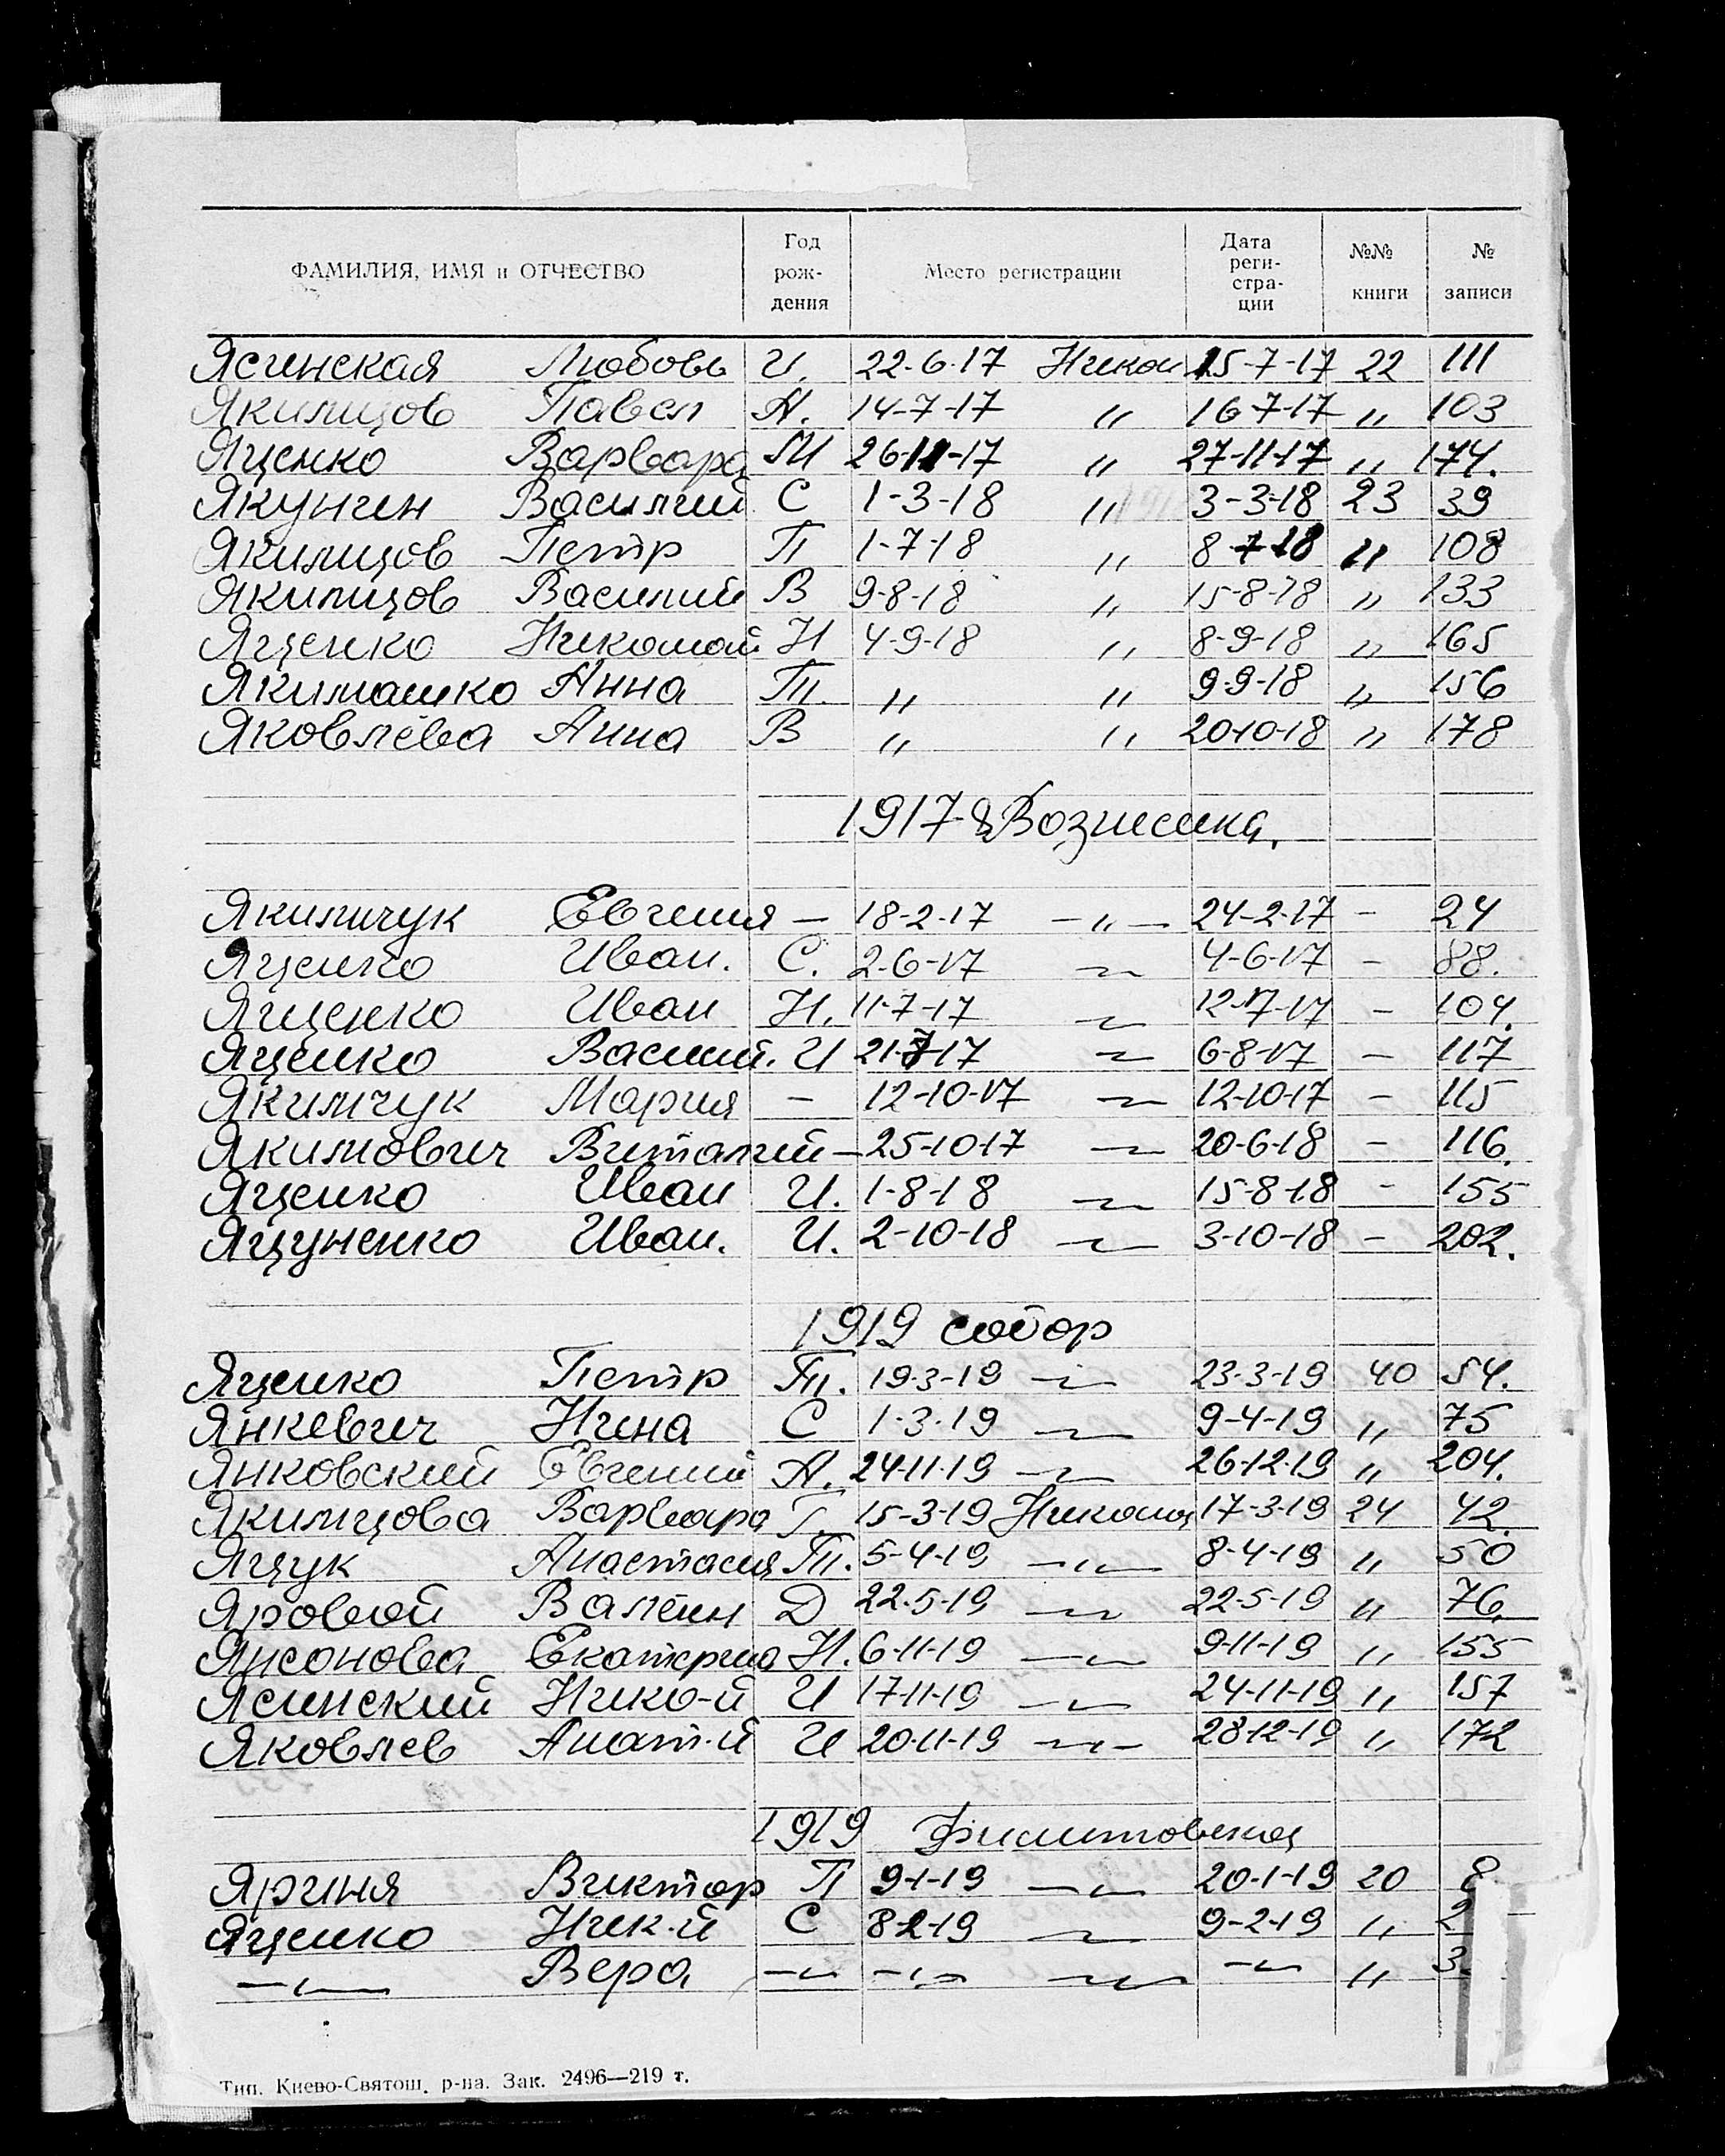 ФАМИЛИЯ, ИМЯ и ОТЧЕСТВО Год рож-дения Место регистрации Дата реги-стра-ции №№ книги № записи
Ясинская Любовь И. 22-6-17 Никол 15-7-17 22 111
Якимцов Павел А. 14-7-17 " 16-7-17 " 103
Яценко Варвара М 26-11-17 " 27-11-17 " 174.
Якунин Василий С 1-3-18 " 3-3-18 23 39
Якимцов Петр П 1-7-18 " 8-7-18 " 108
Якимцов Василий В 9-8-18 " 15-8-18 " 133
Яценко Николай Н 4-9-18 " 8-9-18 " 165
Якимашко Анна Т. " " 9-9-18 " 156
Яковлева Анна В " " 20-10-18 " 178
1917-8
Якимчук Евгения — 18-2-17 —"— 24-2-17 - 24
Яценко Иван. С. 2-6-17 —"— 4-6-17 - 88.
Ященко Иван Н. 11-7-17 —"— 12-7-17 - 104.
Яценко Василий. И 21-7-17 —"— 6-8-17 - 117
Якимчук Мария - 12-10-17 —"— 12-10-17 - 115
Якимович Виталий — 25-10-17 —"— 20-6-18 - 116.
Яценко Иван И. 1-8-18 —"— 15-8-18 - 155
Яцуненко Иван. И. 2-10-18 —"— 3-10-18 - 202.
1919 собор
Яценко Петр Т. 19-3-19 —"— 23-3-19 40 54.
Янкевич Нина С 1-3-19 —"— 9-4-19 " 75
Янковский Евгений А. 24-11-19 —"— 26-12-19 " 204.
Якимцова Варвара Г. 15-3-19 Никола 17-3-19 24 42.
Яцук Анастасия Т. 5-4-19 —"— 8-4-19 " 50
Яровой Вален Д 22-5-19 —"— 22-5-19 " 76.
Янсонова Екатерина Н. 6-11-19 —"— 9-11-19 " 155
Ясинский Нико-й И 17-11-19 —"— 24-11-19 " 157
Яковлев Анат-й И 20-11-19 —"— 28-12-19 " 172
1919
Яриня Виктор П 9-1-19 —"— 20-1-19 20 8
Яценко Ник-й С 8-2-19 —"— 9-2-19 " 2
—"— Вера —"— —"— —"— —"— " 3.
Тип. Киево-Святош. р-на. Зак. 2496—219 т.